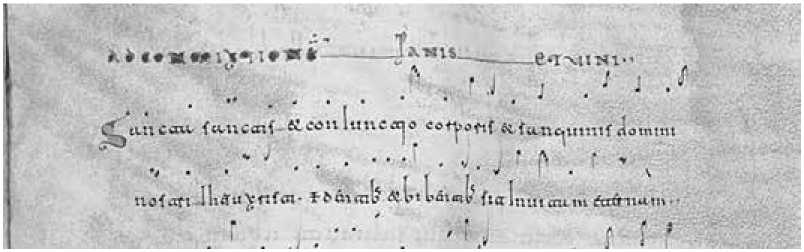 AD COMMIXTIONEM PANIS ET VINI..
Sancta sanctis & coniunctio corporis & sanguinis domini
nostri Ihu xpisti. edentib; & bibentib; sit In uitam eternam..